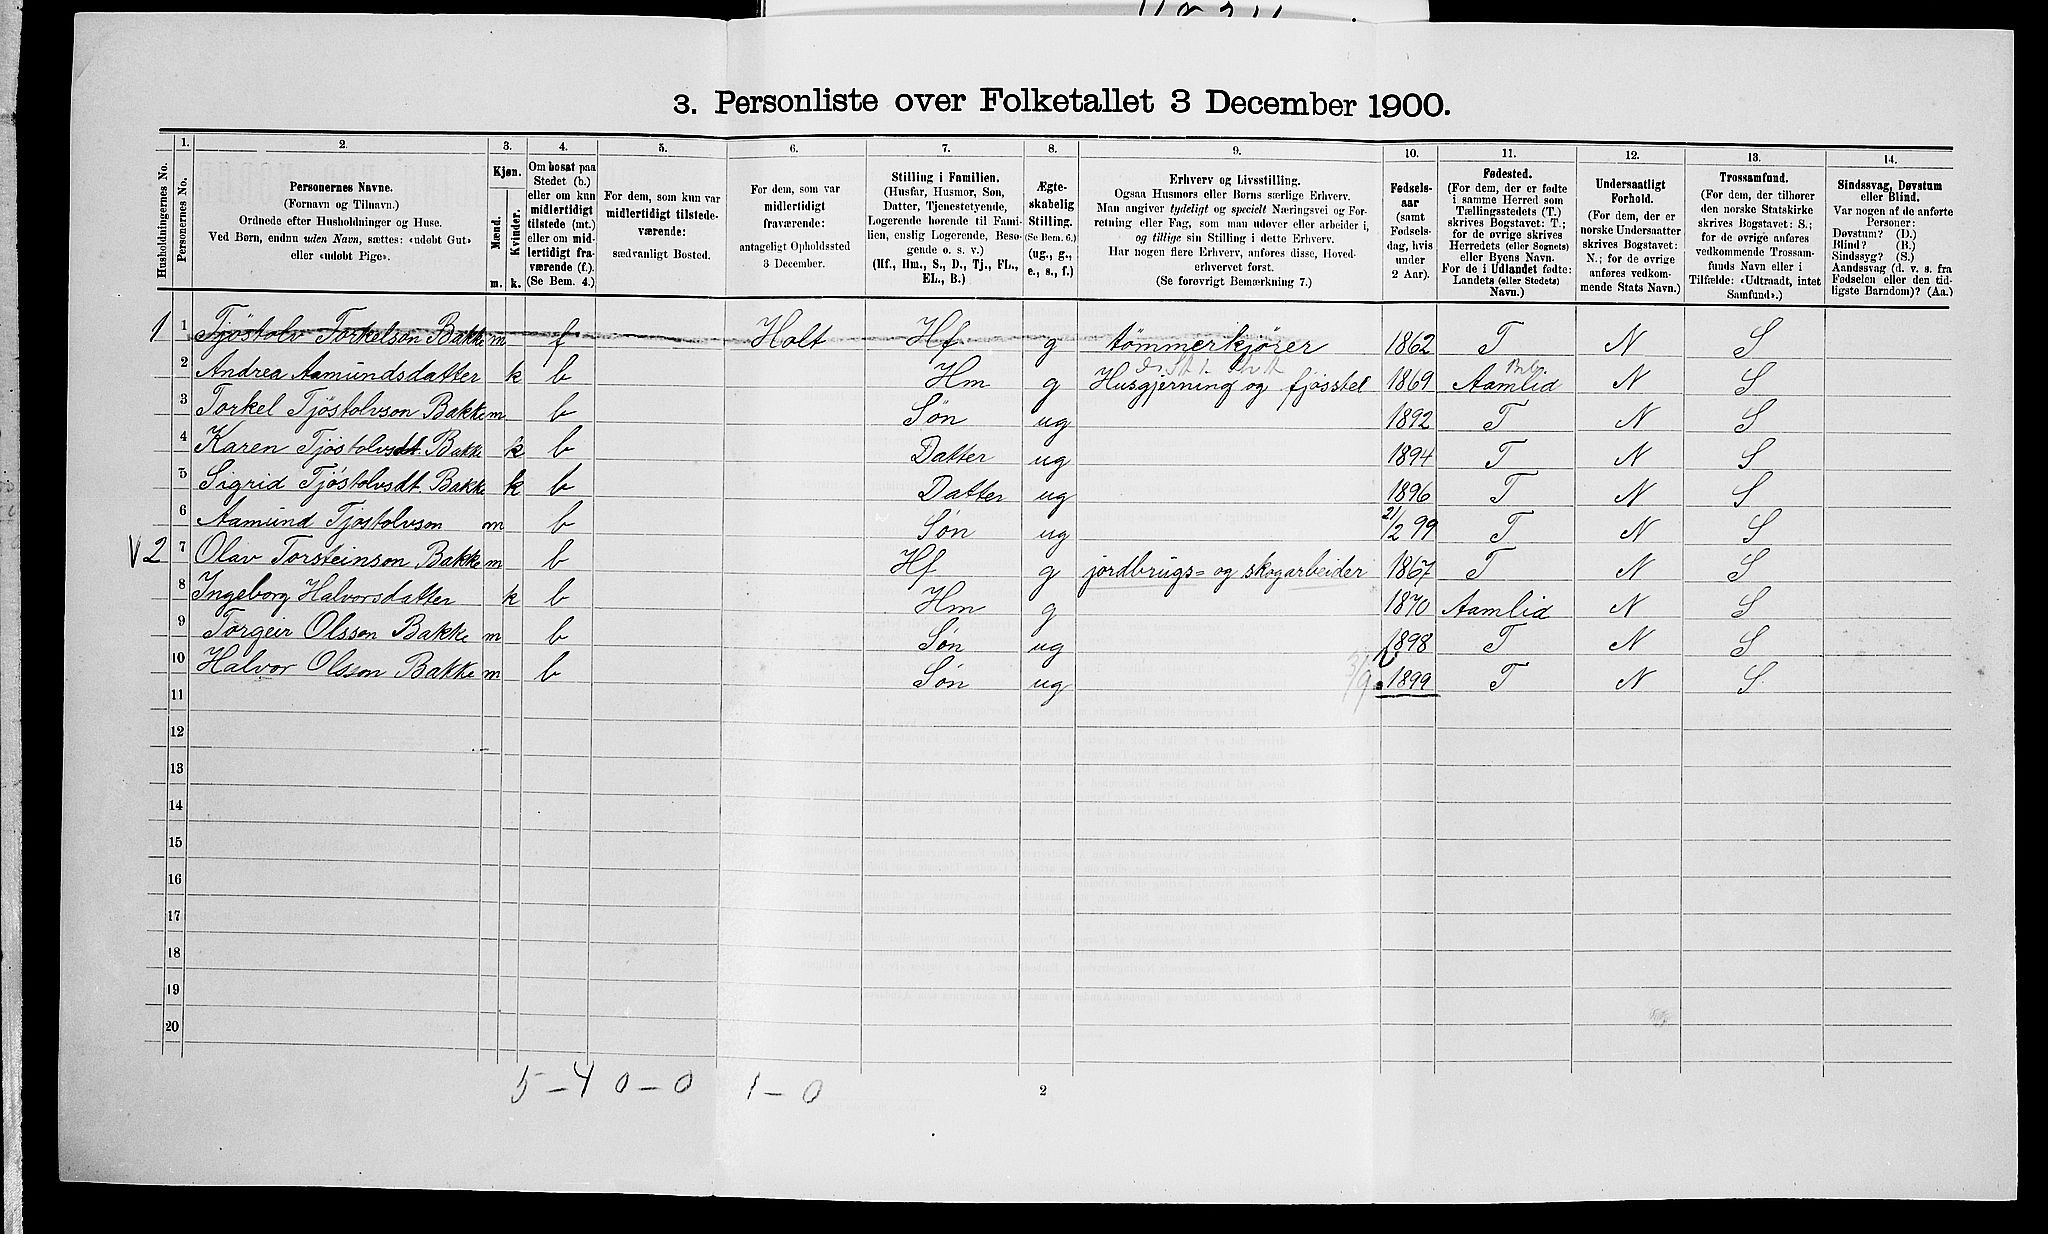 3. Personliste over Folketallet 3 December 1900.
Husholdningernes No.
1. Personernes No.
2. Personernes Navne. (Fornavn og Tilnavn.) Ordnede efter Husholdninger og Huse. Ved Børn, endnu uden Navn, sættes: «udøbt Gut» eller «udøbt Pige».
3. Kjøn. Mænd. m. Kvinder. k.
4. Om bosat paa Stedet (b.) eller om kun midlertidigt tilstede (mt.) eller om midlertidigt fraværende (f.). (Se Bem. 4.)
5. For dem, som kun var midlertidigt tilstedeværende: sædvanligt Bosted.
6. For dem, som var midlertidigt fraværende: antageligt Opholdssted 3 December.
7. Stilling i Familien. (Husfar, Husmor, Søn, Datter, Tjenestetyende, Logerende hørende til Familien, enslig Logerende, Besøgende o. s. v.) (Hf., Hm., S., D., Tj., FL., EL., B.)
8. Ægteskabelig Stilling. (Se Bem. 6.) (ug., g., e., s., f.)
9. Erhverv og Livsstilling. Ogsaa Husmors eller Børns særlige Erhverv. Man angiver tydeligt og specielt Næringsvei og Forretning eller Fag, som man udøver eller arbeider i, og tillige sin Stilling i dette Erhverv. Har nogen flere Erhverv, anføres disse, Hovederhvervet først. (Se forøvrigt Bemærkning 7.)
10. Fødselsaar (samt Fødselsdag, hvis under 2 Aar).
11. Fødested. (For dem, der er fødte i samme Herred som Tællingsstedets (T.) skrives Bogstavet: T.; for de øvrige skrives Herredets (eller Sognets) eller Byens Navn. For de i Udlandet fødte: Landets (eller Stedets) Navn.)
12. Undersaatligt Forhold. (For dem, der er norske Undersaatter skrives Bogstavet: N.; for de øvrige anføres vedkommende Stats Navn.)
13. Trossamfund. (For dem, der tilhører den norske Statskirke skrives Bogstavet: S.; for de øvrige anføres vedkommende Trossamfunds Navn eller i Tilfælde: «Udtraadt, intet Samfund».)
14. Sindssvag, Døvstum eller Blind. Var nogen af de anførte Personer: Døvstum? (D.) Blind? (B.) Sindssyg? (S.) Aandssvag (d. v. s. fra Fødselen eller den tidligste Barndom)? (Aa.)
1 1 Tjöstolv Torkelson Bakke m f Holt Hf g tömmerkjörer 1862 T N S
2 Andrea Aamundsdatter k b Hm g Husgjerning og fjösstel 1869 Aamlid N S
3 Torkel Tjöstolvson Bakke m b Sön ug 1892 T N S
4 Karen Tjöstolvsdt. Bakke k b Datter ug 1894 T N S
5 Sigrid Tjöstolvsdt. Bakke k b Datter ug 1896 T N S
6 Aamund Tjöstolvson m b Sön ug 21/2 99 T N S
V 2 7 Olav Torsteinson Bakke m b Hf g jordbrugs= og skogarbeider 1867 T N S
8 Ingeborg Halvorsdatter k b Hm g 1870 Aamlid N S
9 Torgeir Olsson Bakke m b Sön ug 1898 T N S
10 Halvor Olsson Bakke m b Sön ug 3/9 1899 T N S
11
12
13
14
15
16
17
18
19
20
5 – 4 0 – 0 1 – 0
2